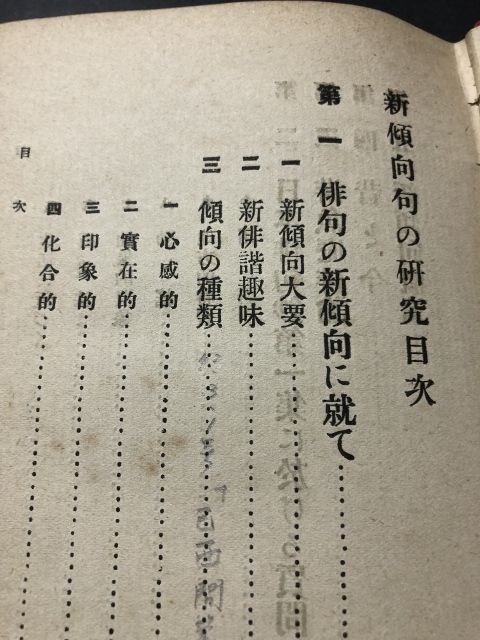 新傾向句の研究目次
第一 俳句の新傾向に就て
一 新傾向大要
二 新俳諧趣味
三 傾向の種類
一 心感的
二 實在的
三 印象的
四 化合的
目次